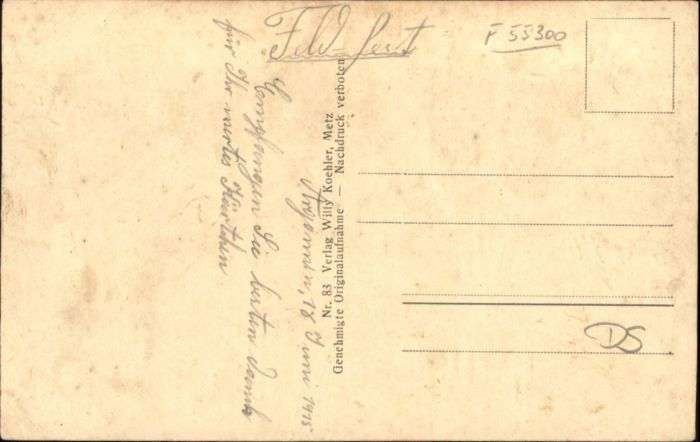 Feld-Post
F 55300
Argonnen, 18 Juni 1915
Empfangen Sie besten Dank
für Ihr wertes Kärtchen
Nr. 83 Verlag Willy Koehler, Metz
Genehmigte Originalaufnahme — Nachdruck verboten
DS